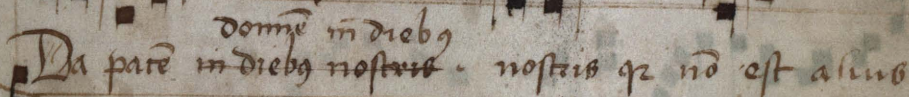 domine̅ in diebꝰ
Da pace̅ in diebꝰ nostris . nostris qꝛ no̅ est alius